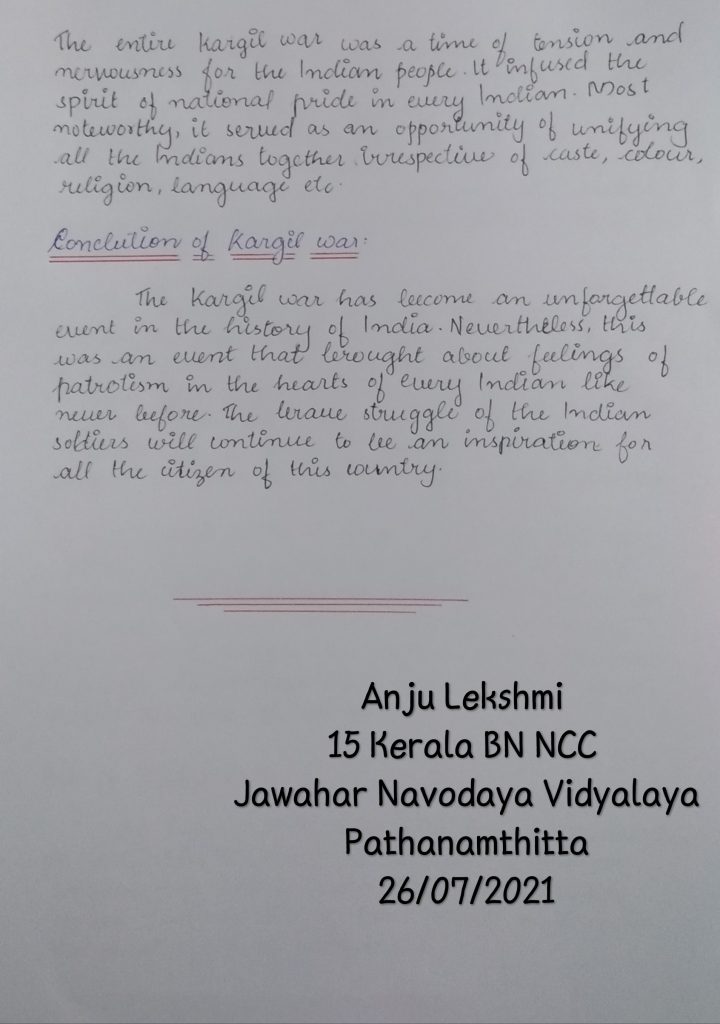 The entire Kargil war was a time of tension and
nervousness for the Indian people. It infused the
spirit of national pride in every Indian. Most
noteworthy, it served as an opportunity of unifying
all the Indians together irrespective of caste, colour,
religion, language etc.
Conclution of Kargil war:
The Kargil war has become an unforgettable
event in the history of India. Nevertheless, this
was an event that brought about feelings of
patrotism in the hearts of every Indian like
never before. The brave struggle of the Indian
soltiers will continue to be an inspiration for
all the citizen of this country.
Anju Lekshmi
15 Kerala BN NCC
Jawahar Navodaya Vidyalaya
Pathanamthitta
26/07/2021